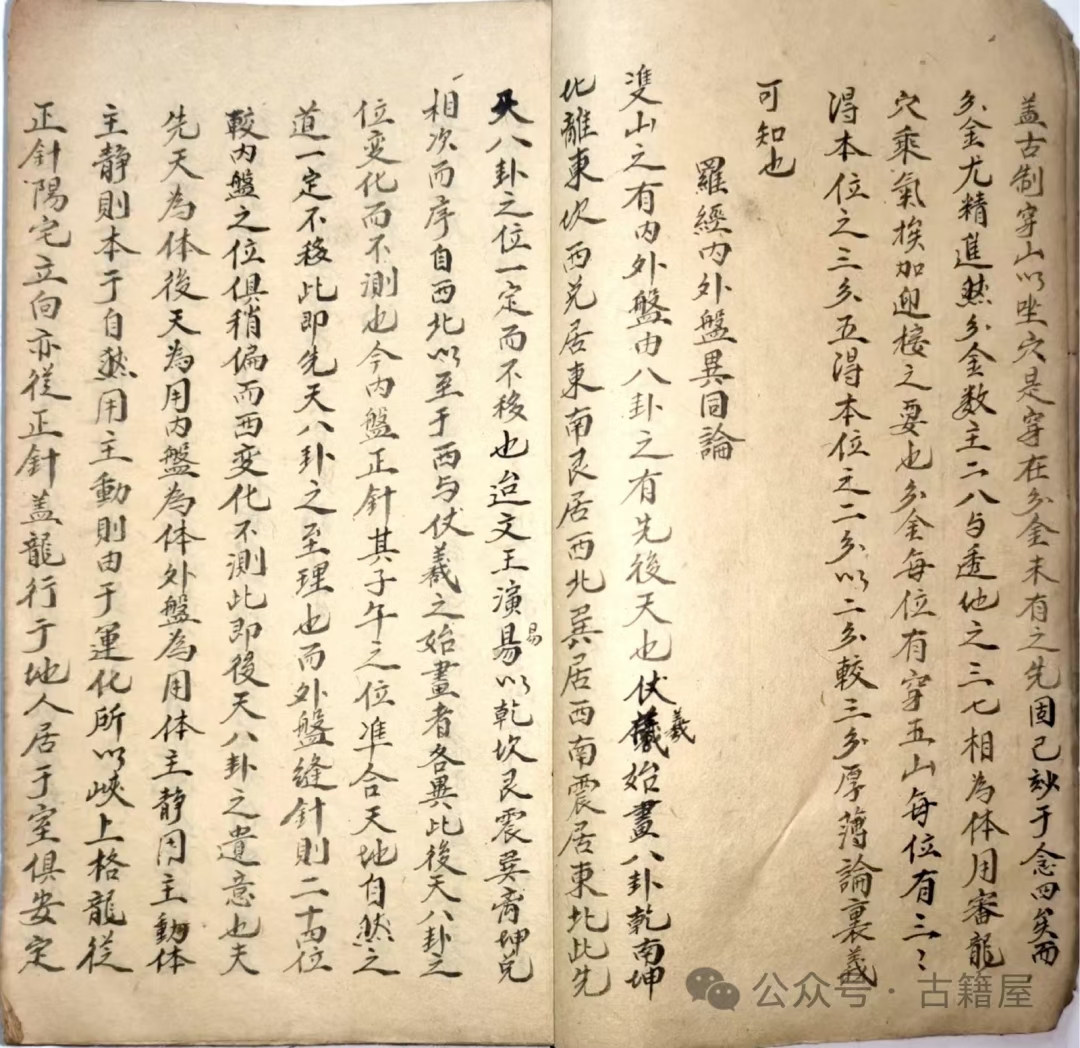 盖古制穿山以坐穴是穿在分金未有之先固已妙于念四矣而
分金尤精進然分金数主二八与透他之三七相為体用審龍
穴乘氣挨加迎接之要也分金每位有穿五山每位有三〻
得本位之三分五得本位之二分以二分較三分厚薄論裏義
可知也
羅經内外盤異同論
雙山之有内外盤由八卦之有先後天也伏羲始畫八卦乾南坤
北離東坎西兑居東南艮居西北巽居西南震居東北此先
天八卦之位一定而不移也迨文王演易以乾坎艮震巽离坤兑
相次而序自西北以至于西与伏羲之始畫者各異此後天八卦之
位变化而不測也今内盤正針其子午之位準合天地自然之
道一定不移此即先天八卦之至理也而外盤縫針則二十四位
較内盤之位俱稍偏而西变化不測此即後天八卦之遺意也夫
先天為体後天為用内盤為体外盤為用体主静用主動体
主静則本于自然用主動則由于運化所以峽上格龍從
正針陽宅立向亦從正針盖龍行于地人居于室俱安定
公众号·古籍屋